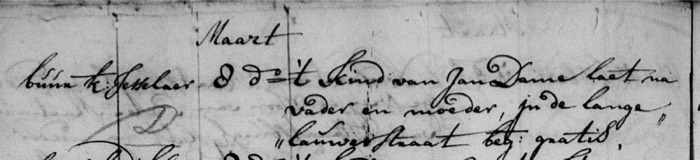 Maart
buurk: Jesselaer 8 do 't Kind van Jan Dame laet na
vader en moeder, in de lange
"lauwerstraat beg: gratis, "
D